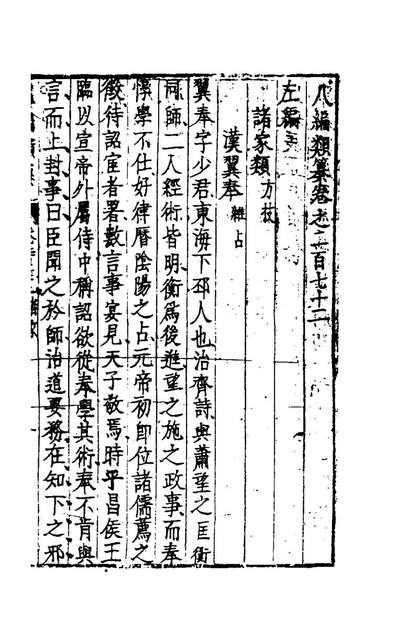 八編類纂卷之二百七十二
左編
諸家類 方技
漢翼奉 雜占
翼奉字少君東海下邳人也治齊詩與蕭望之匡衡
同師二人經術皆明衡爲後進望之施之政事而奉
惇學不仕好律曆陰陽之占元帝初卽位諸儒薦之
徵待詔宦者署數言事宴見天子敬焉時平昌侯王
臨以宣帝外屬侍中稱詔欲從奉學其術奉不肯與
言而上封事曰臣聞之於師治道要務在知下之邪